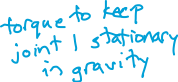 torque to keep
joint 1 stationary
in gravity